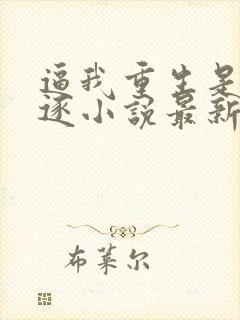 逼我重生是
逐小説最新
布莱尔